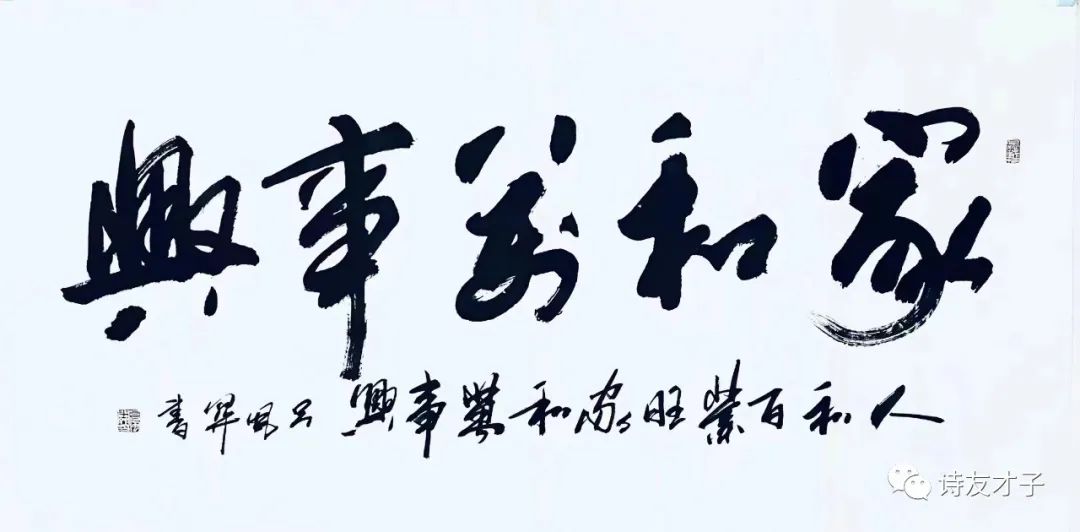 家和萬事興
人和百業旺家和萬事興
書
诗友才子